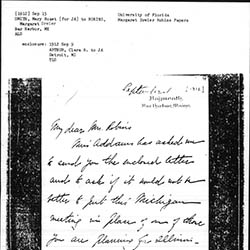 [1912] Sep 13
SMITH, Mary Rozet [for JA] to ROBINS,
Margaret Dreier
Bar Harbor, ME
HLS
University of Florida
Margaret Dreier Robins Papers
enclosure: 1912 Sep 9
ARTHUR, Clara B. to JA
Detroit, MI
TLS
Hulls Cove
Bar Harbor, Maine.
My dear Mrs. Robins
Miss Addams has asked me
to send you the enclosed letter
and to ask if it would not be
better to put this Michigan
meeting in place of one of those
you are planning for Illinois.